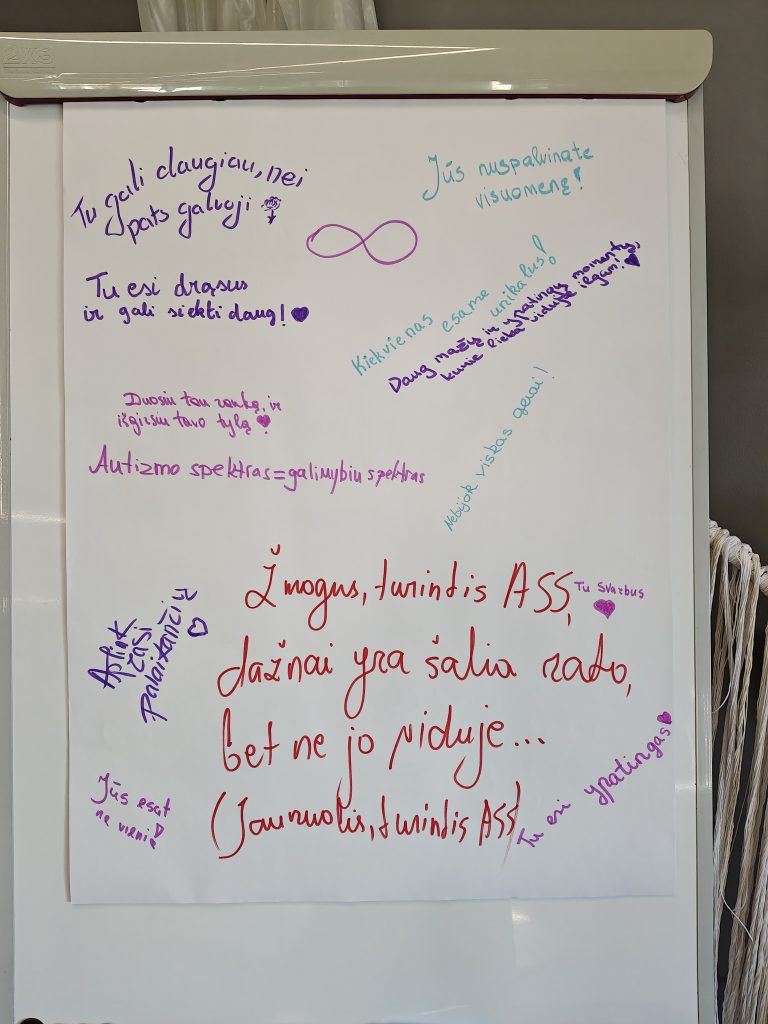 2X3
Tu gali daugiau, nei
pats galvoji
Jūs nuspalvinate
visuomenę!
Tu esi drąsus
ir gali siekti daug!
Kiekvienas esame unikalus!
Daug mažų ir ypatingų momentų,
kurie lieka viduje ilgam!
Duosiu tau ranką, ir
išgirsiu tavo tylą
Autizmo spektras=galimybių spektras
Nebijok viskas gerai!
Žmogus, turintis ASS,
dažnai yra šalia rato,
bet ne jo viduje...
(Jaunuolis, turintis ASS)
Tu svarbus
Aplink
palaikančių
Jūs esat
ne vieni!
Tu esi ypatingas